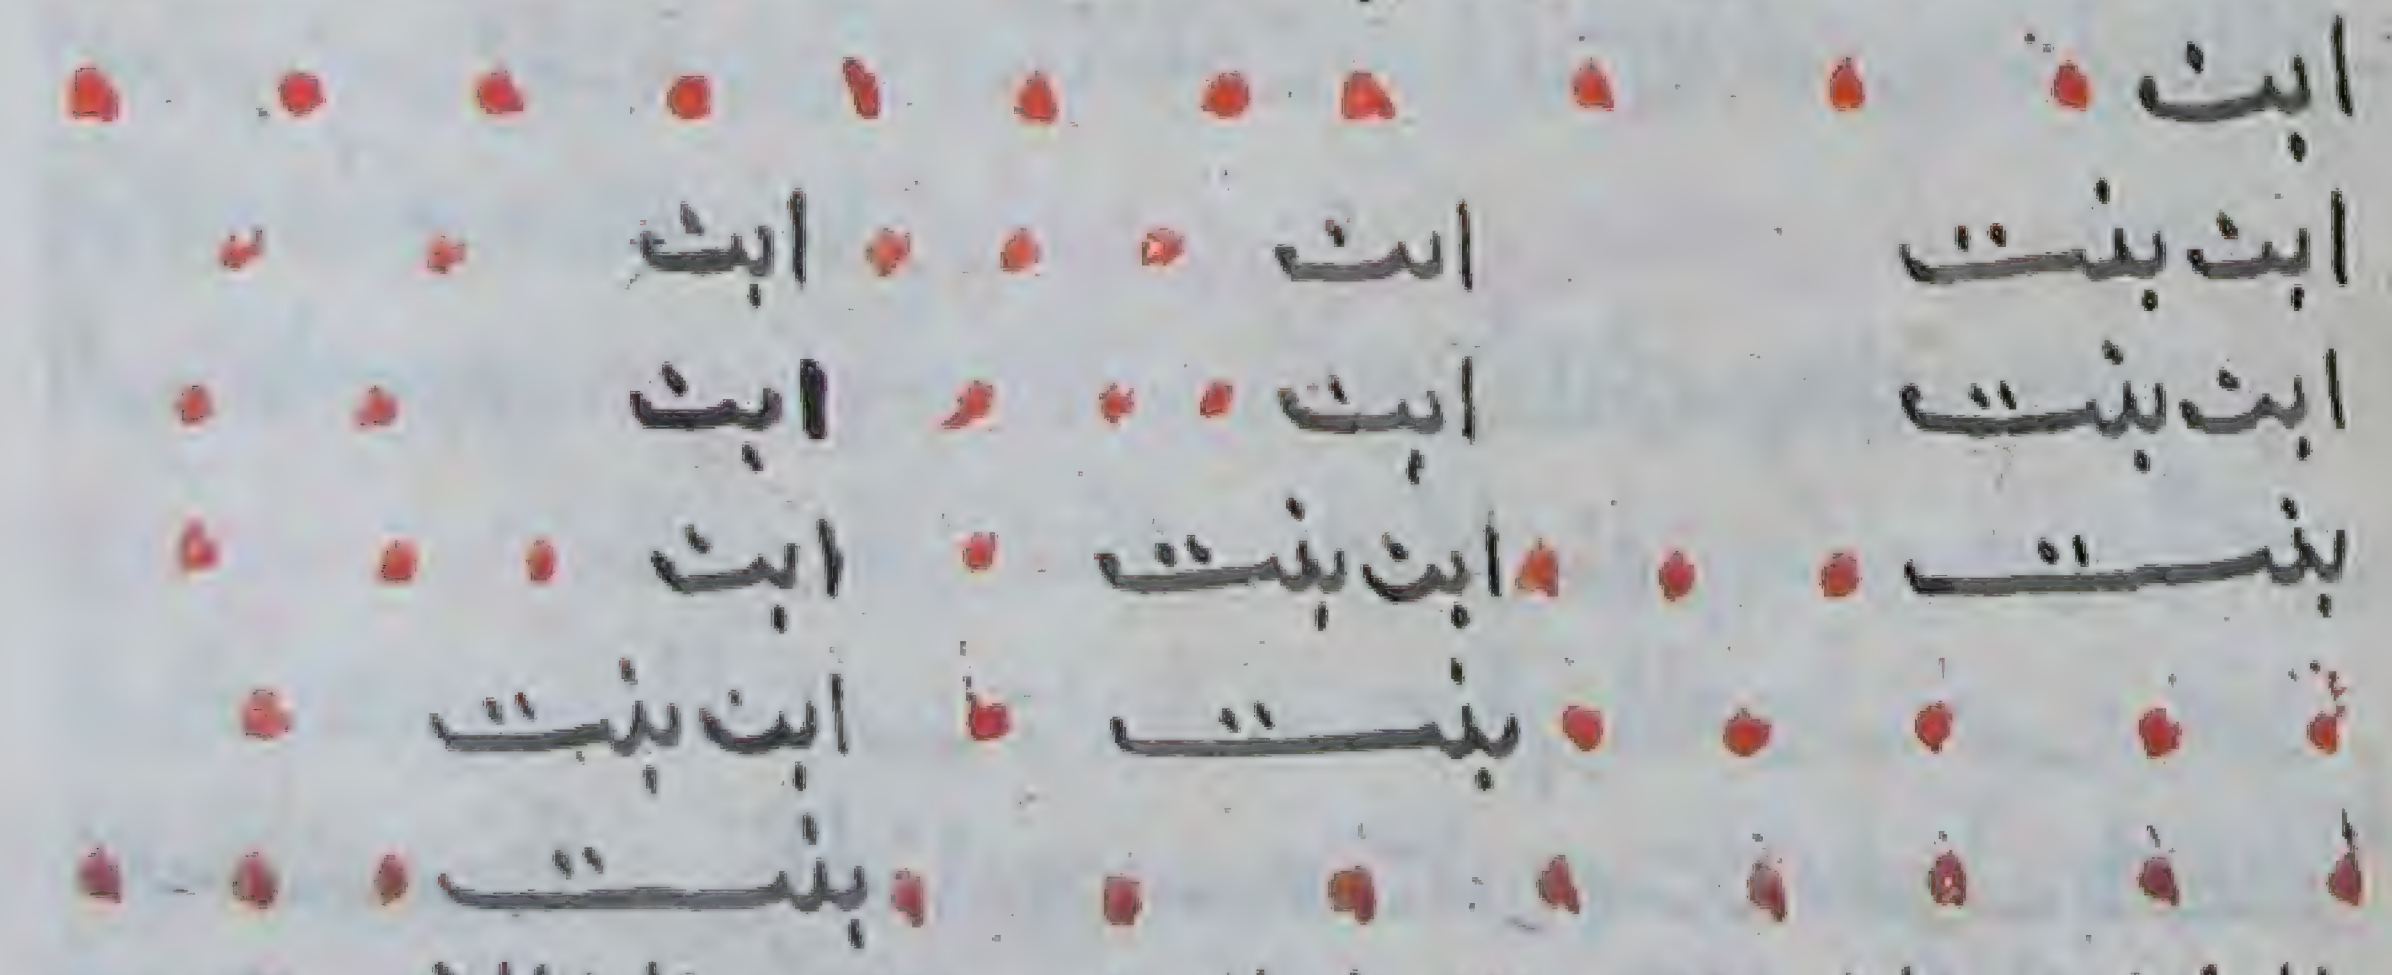 ابن
ابن بنت ابن ابن
ابن بنت ابن ابن
بنت ابن بنت ابن
بنت ابن بنت
بنت